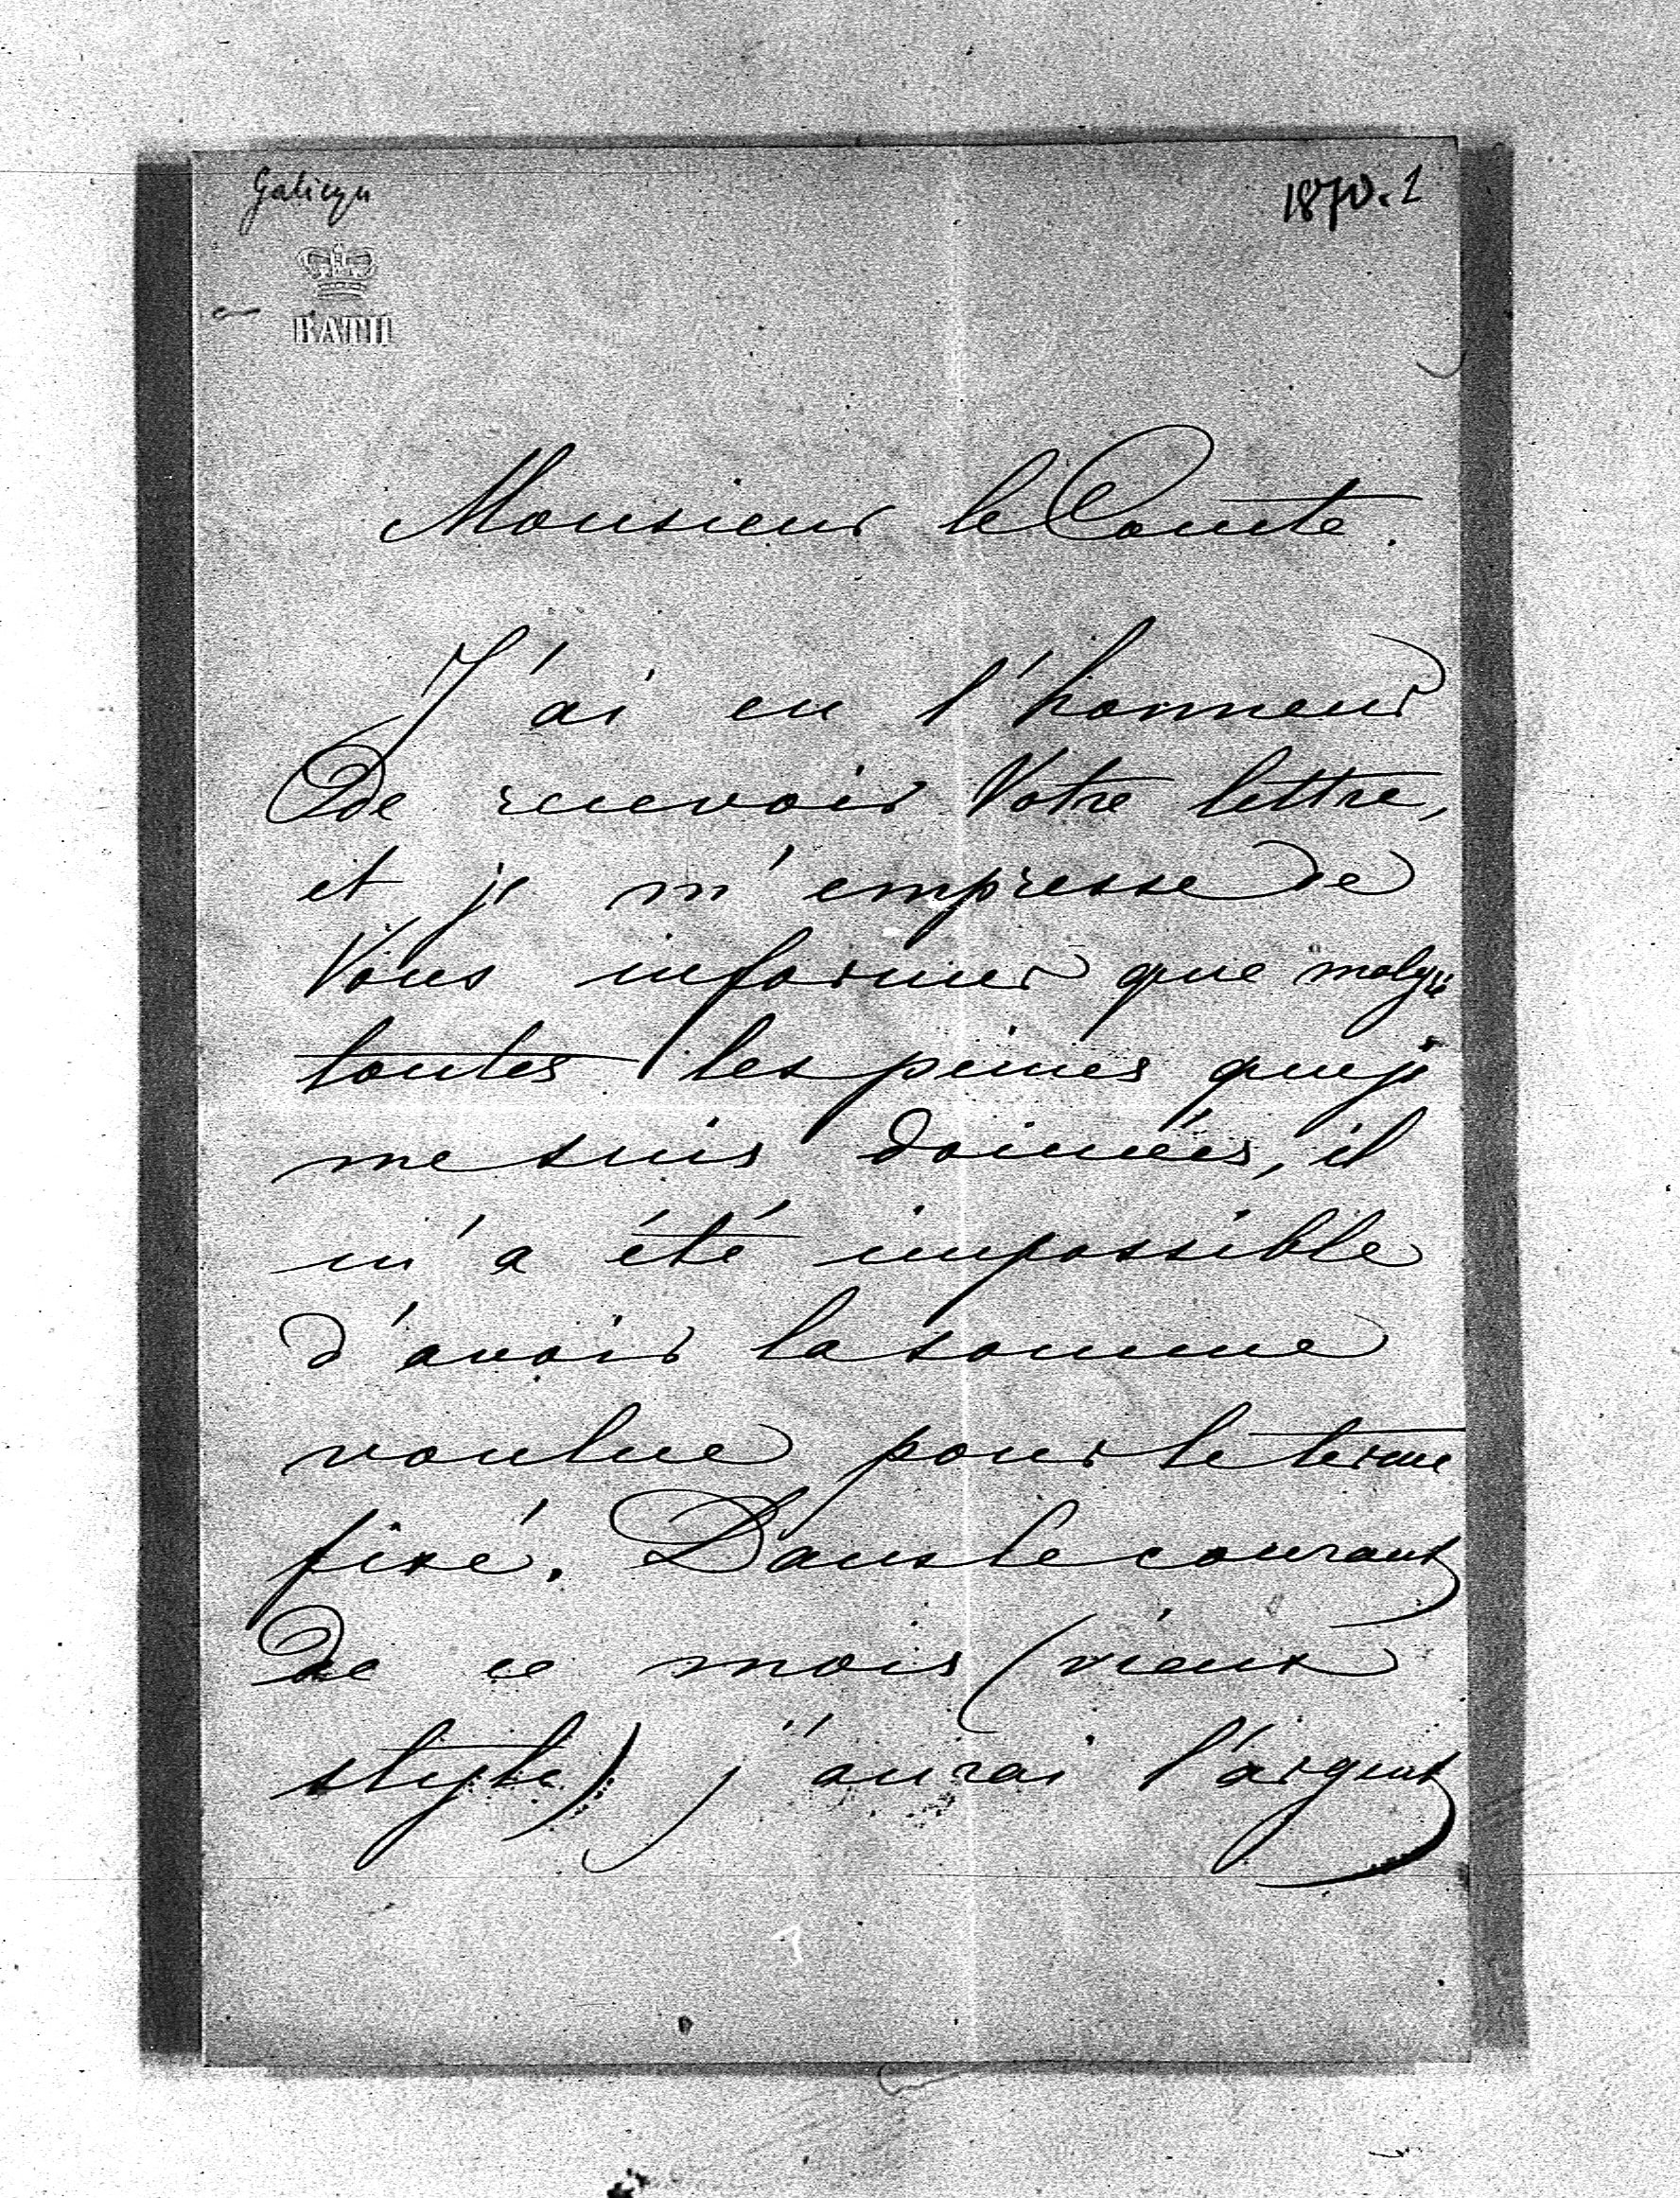 Galicyn
1870. 1
BATH
Monsieur le Comte.
J'ai eu l'honneur
de recevoir Votre lettre,
et je m'empresse de
Vous informer que malgré
toutes les peines que je
me suis données, il
m'a été impossible
d'avoir la somme
voulue pour le terme
fixé. Dans le courant
de ce mois (vieux
style) j'aurai l'argent